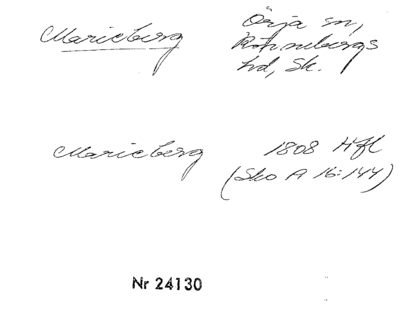 Marieberg
Örja sn,
Rönnebergs
hd, Sk.
Marieberg
1808 Hfl
(Sko A 16:144)
Nr 24130